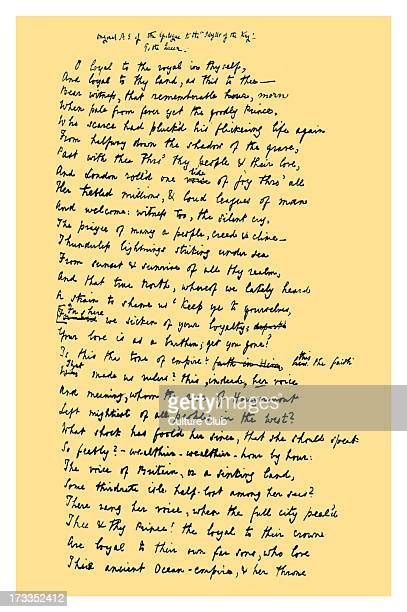 original M.S. of the Epilogue to the "Idylls of the King".
To the Queen.
O loyal to the royal in thyself,
And loyal to thy land, as this to thee—
Bear witness, that rememberable hour, morn
When pale from fever yet the goodly Prince,
Who scarce had pluck'd his flickering life again
From halfway down the shadow of the grave,
Past with thee thro' thy people & their love,
And London roll'd one tide of joy thro' all
Her trebled millions, & loud leagues of man
And welcome: witness too, the silent cry,
The prayer of many a people, creed & clime—
Thunderless lightnings striking under sea
From sunset & sunrise of all thy realm,
And that true North, whereof we lately heard
A strain to shame us 'Keep ye to yourselves,
we sicken of your loyalty;
Your love is as a burthen; get you gone!'
Is this the tone of empire? faith in Him, this the faith
That made us rulers? this, indeed, her voice
And meaning, whom the roar of Hougoumont
Left mightiest of all peoples in the west?
What shock has fool'd her since, that she should speak
So feebly?—wealthier—wealthier—hour by hour:
The voice of Britain, or a sinking land,
Some thirdrate isle half-lost among her seas?
There rang her voice, when the full city peal'd
Thee & thy Prince! the loyal to their crown
Are loyal to their own far sons, who love
This ancient Ocean-empire, & her throne
gettyimages
Culture Club
173352412